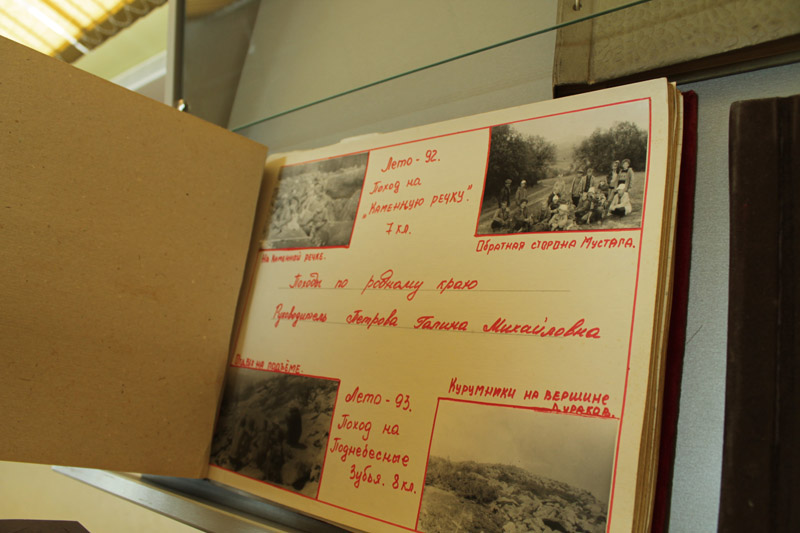 Лето - 92.
Поход на
„Каменную речку".
7 кл.
На каменной речке.
Обратная сторона Мустага.
Походы по родному краю
Руководитель Петрова Галина Михайловна
на подъёме.
Лето - 93.
Поход на
Поднебесные
Зубья. 8 кл.
Курумники на вершине
Дураков.